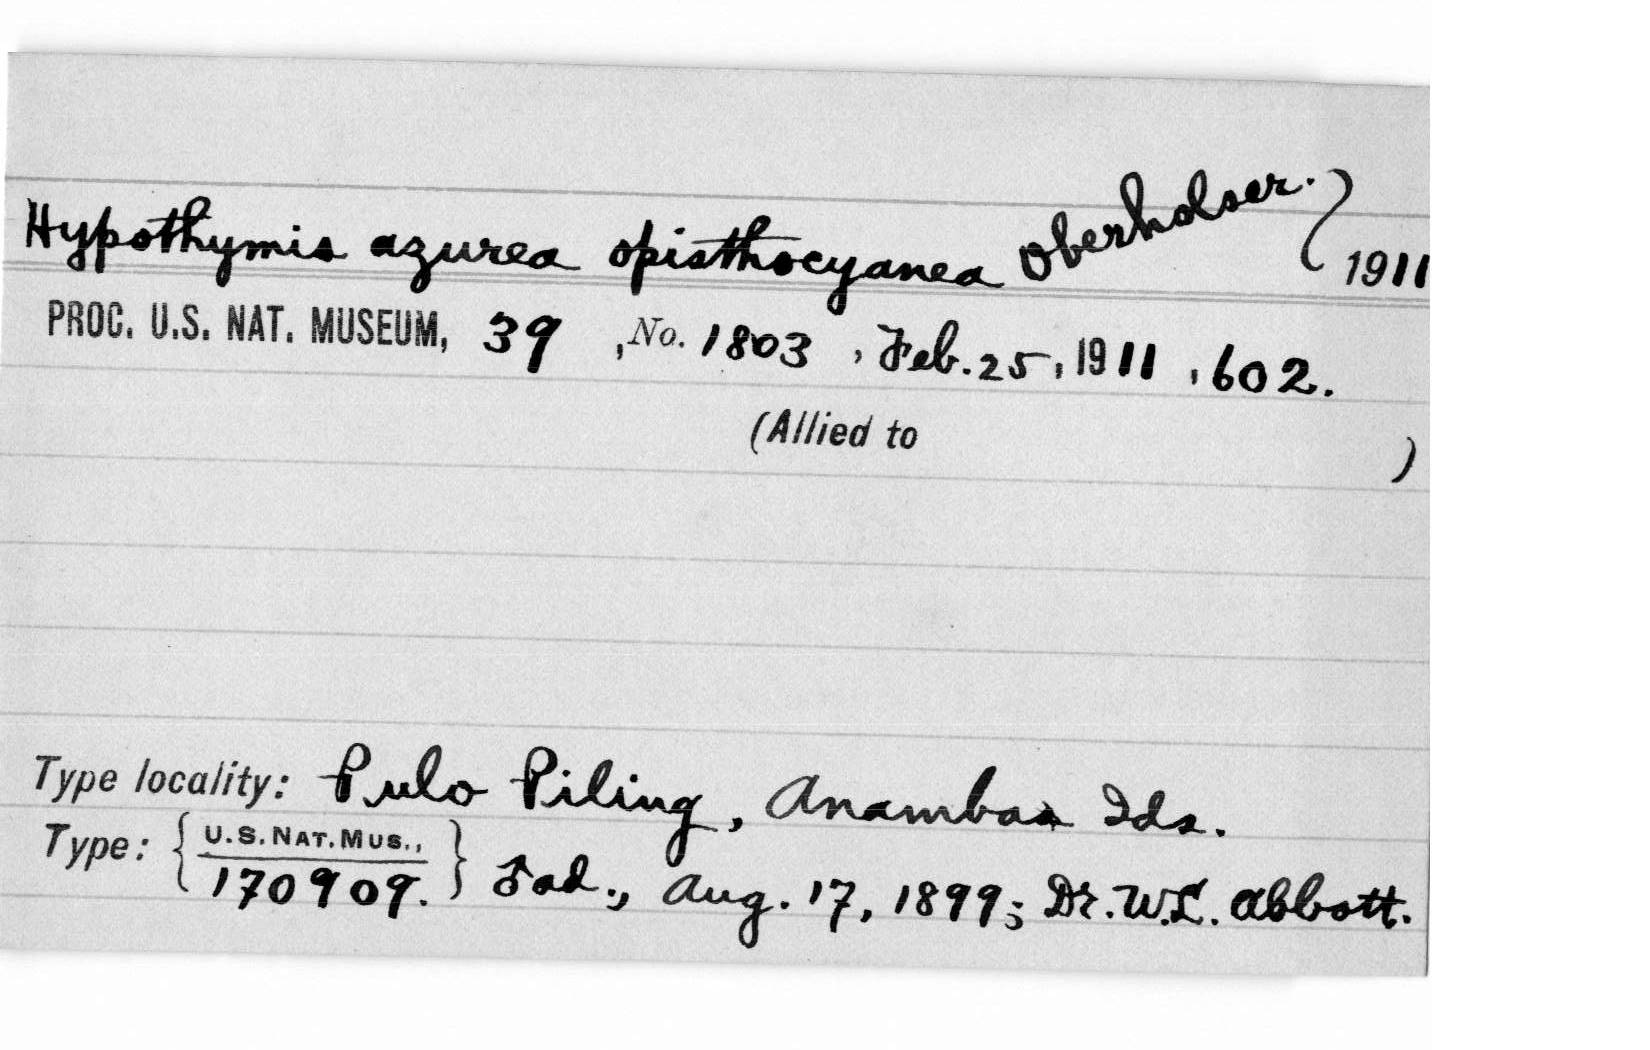 Hypothymis azurea opisthocyanea Oberholser. ) 1911
PROC. U.S. NAT. MUSEUM, 39 , No. 1803 , Feb. 25, 1911 , 602.
(Allied to )
Type locality: Pulo Piling, Anambas Ids.
Type: { U.S. NAT. MUS., 170909. } ♂ ad., Aug. 17, 1899; Dr. W.L. Abbott.